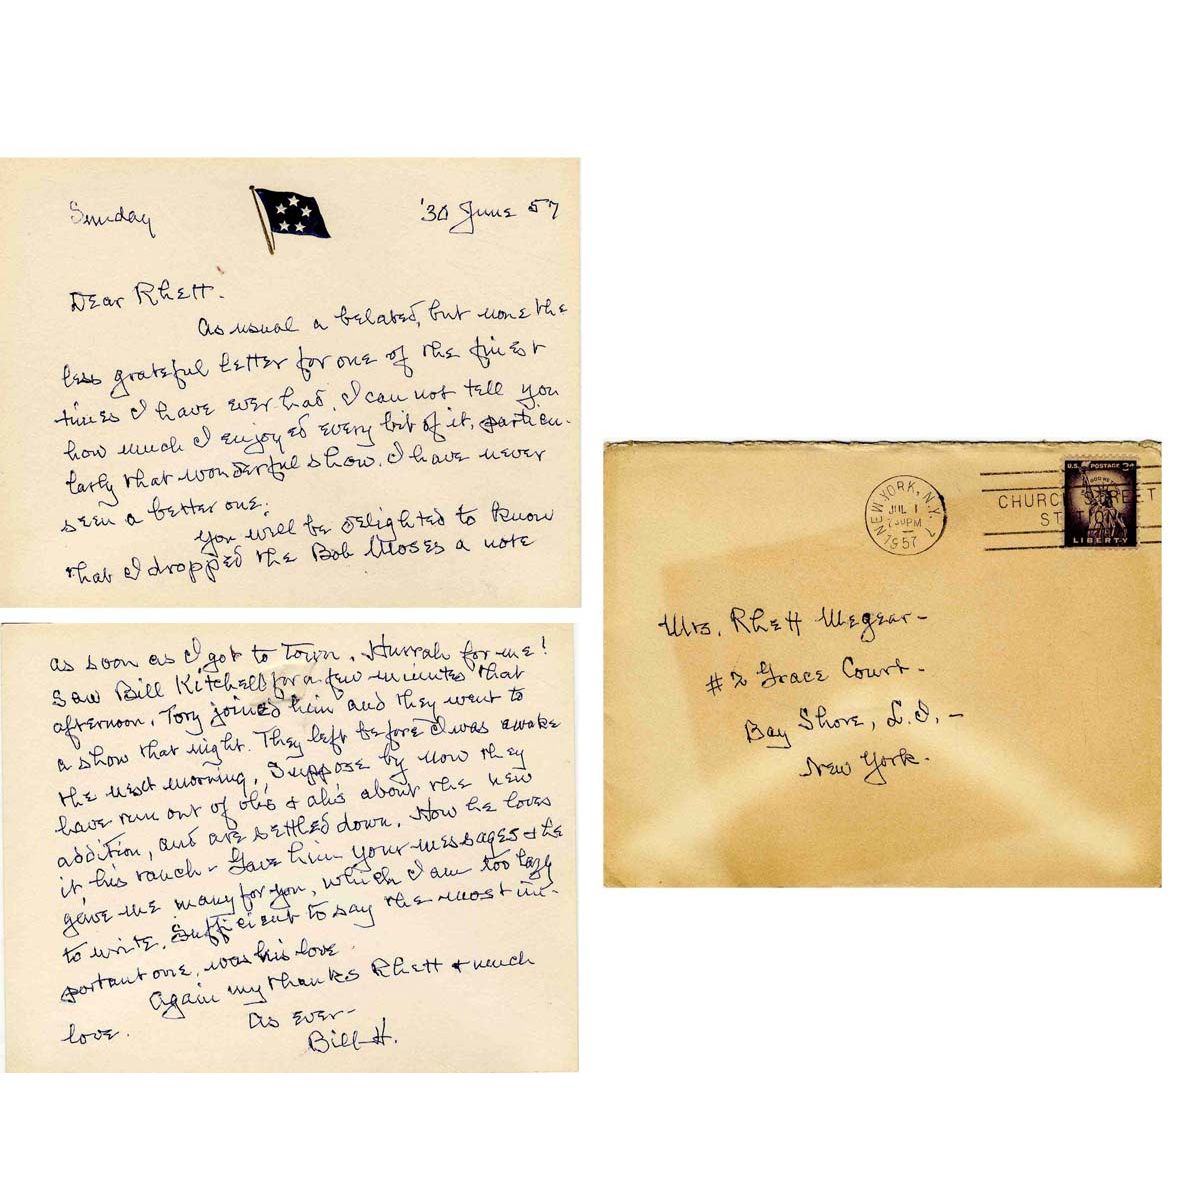 Sunday
'30 June 57
Dear Rhett.
As usual a belated, but none the
less grateful letter for one of the finest
times I have ever had. I can not tell you
how much I enjoyed every bit of it, particu-
larly that wonderful show. I have never
seen a better one.
You will be delighted to know
that I dropped the Bob Moses a note
as soon as I got to Town. Hurrah for me!
Saw Bill Kitchell for a few minutes that
afternoon. Tory joined him and they went to
a show that night. They left before I was awake
the next morning. Suppose by now they
have run out of oh's & ah's about the new
addition, and are settled down. How he loves
it his ranch - Gave him your messages & he
gave me many for you, which I am too lazy
to write. Sufficient to say the most im-
portant one, was his love.
Again my thanks Rhett & much
love.
As ever-
Bill H.
NEW YORK, N.Y. 7
JUL 1
PM
1957
CHURCH STREET
STATION
U.S. POSTAGE 3¢
IN GOD WE TRUST
LIBERTY
Mrs. Rhett Megear-
#2 Grace Court-
Bay Shore, L.I.,-
New York.